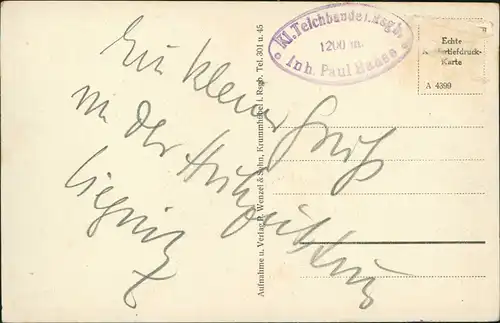 Kl. Teichbaude i. Rsgb.
1200 m.
Inh. Paul Haase
Echte
Kupfertiefdruck-
Karte
A 4399
Ein kleiner Gruß
in der
Liegnitz
Aufnahme u. Verlag P. Wenzel & Sohn, Krummhübel i. Rsgb. Tel. 301 u. 45